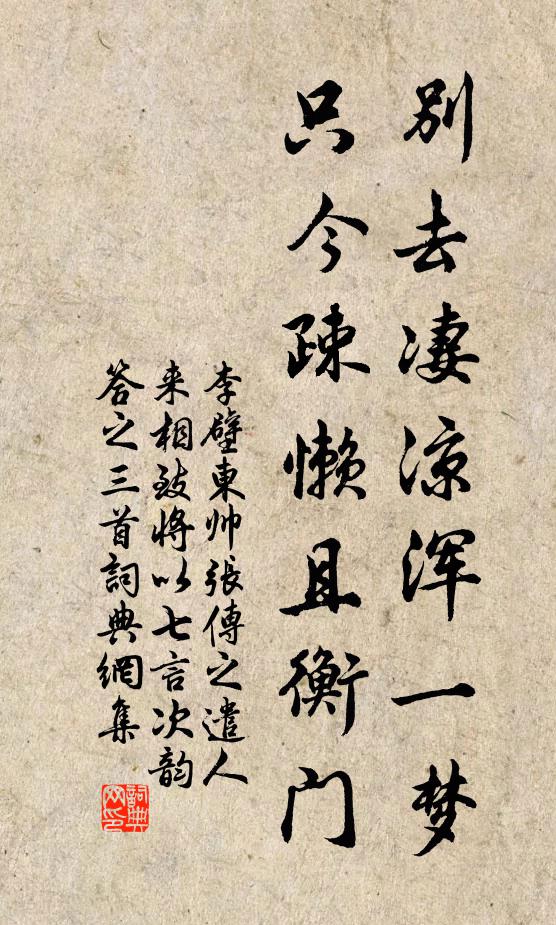 别去凄凉浑一梦
只今疎懒且衡门
李壁東帅張傅之遣人
来相致將以七言次韵
答之三首詞典網集
詞典
网印